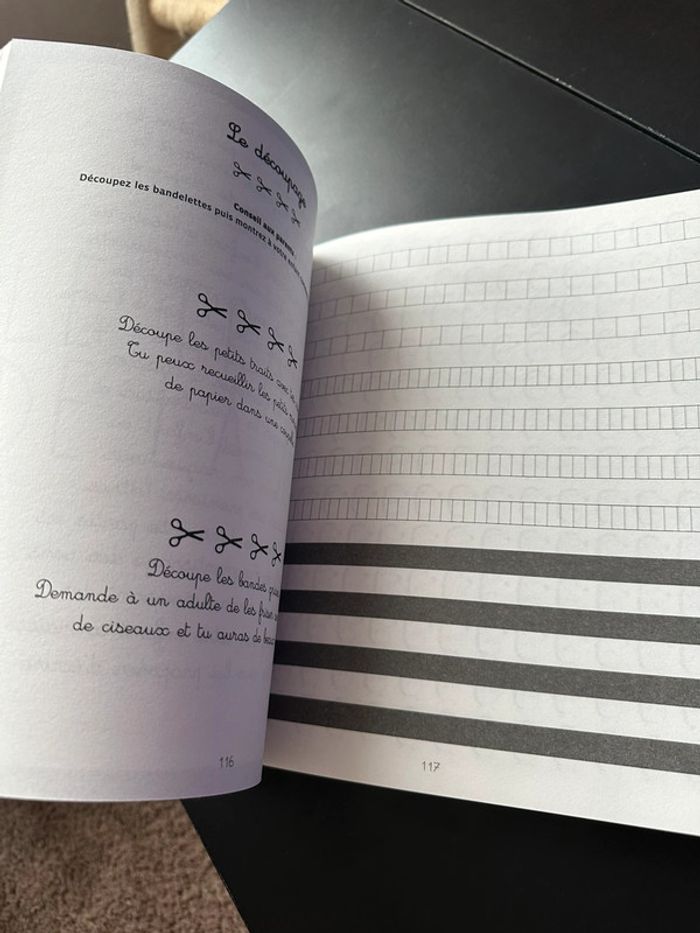 Le découpage
Conseil aux parents :
Découpez les bandelettes puis montrez à votre enfant
Découpe les petits traits avec
Tu peux recueillir les petits
de papier dans une
Découpe les bandes
Demande à un adulte de les friser
de ciseaux et tu auras de
116
117